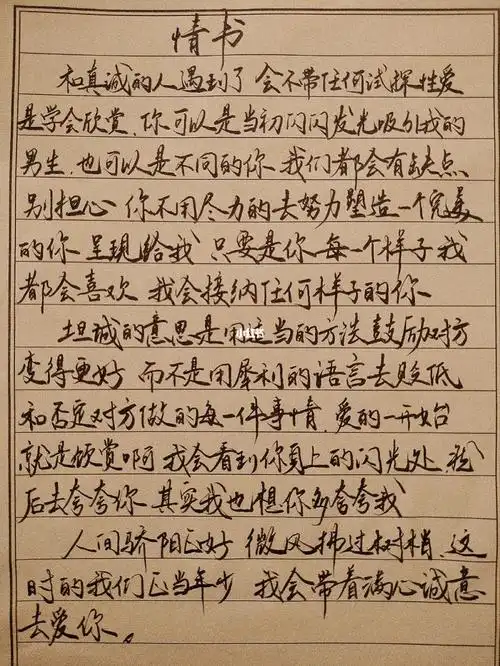 情书
和真诚的人遇到了 会不带任何试探性爱
是学会欣赏，你可以是当初闪闪发光吸引我的
男生，也可以是不同的你 我们都会有缺点
别担心 你不用尽力的去努力塑造一个完美
的你 呈现给我 只要是你每一个样子我
都会喜欢 我会接纳任何样子的你
坦诚的意思是用适当的方法鼓励对方
变得更好 而不是用犀利的语言去贬低
和否定对方做的每一件事情，爱的一开始
就是欣赏啊 我会看到你身上的闪光处，然
后去夸夸你 其实我也想你多夸夸我
人间骄阳正好 微风拂过树梢，这
时的我们正当年少 我会带着满心诚意
去爱你。
小红书